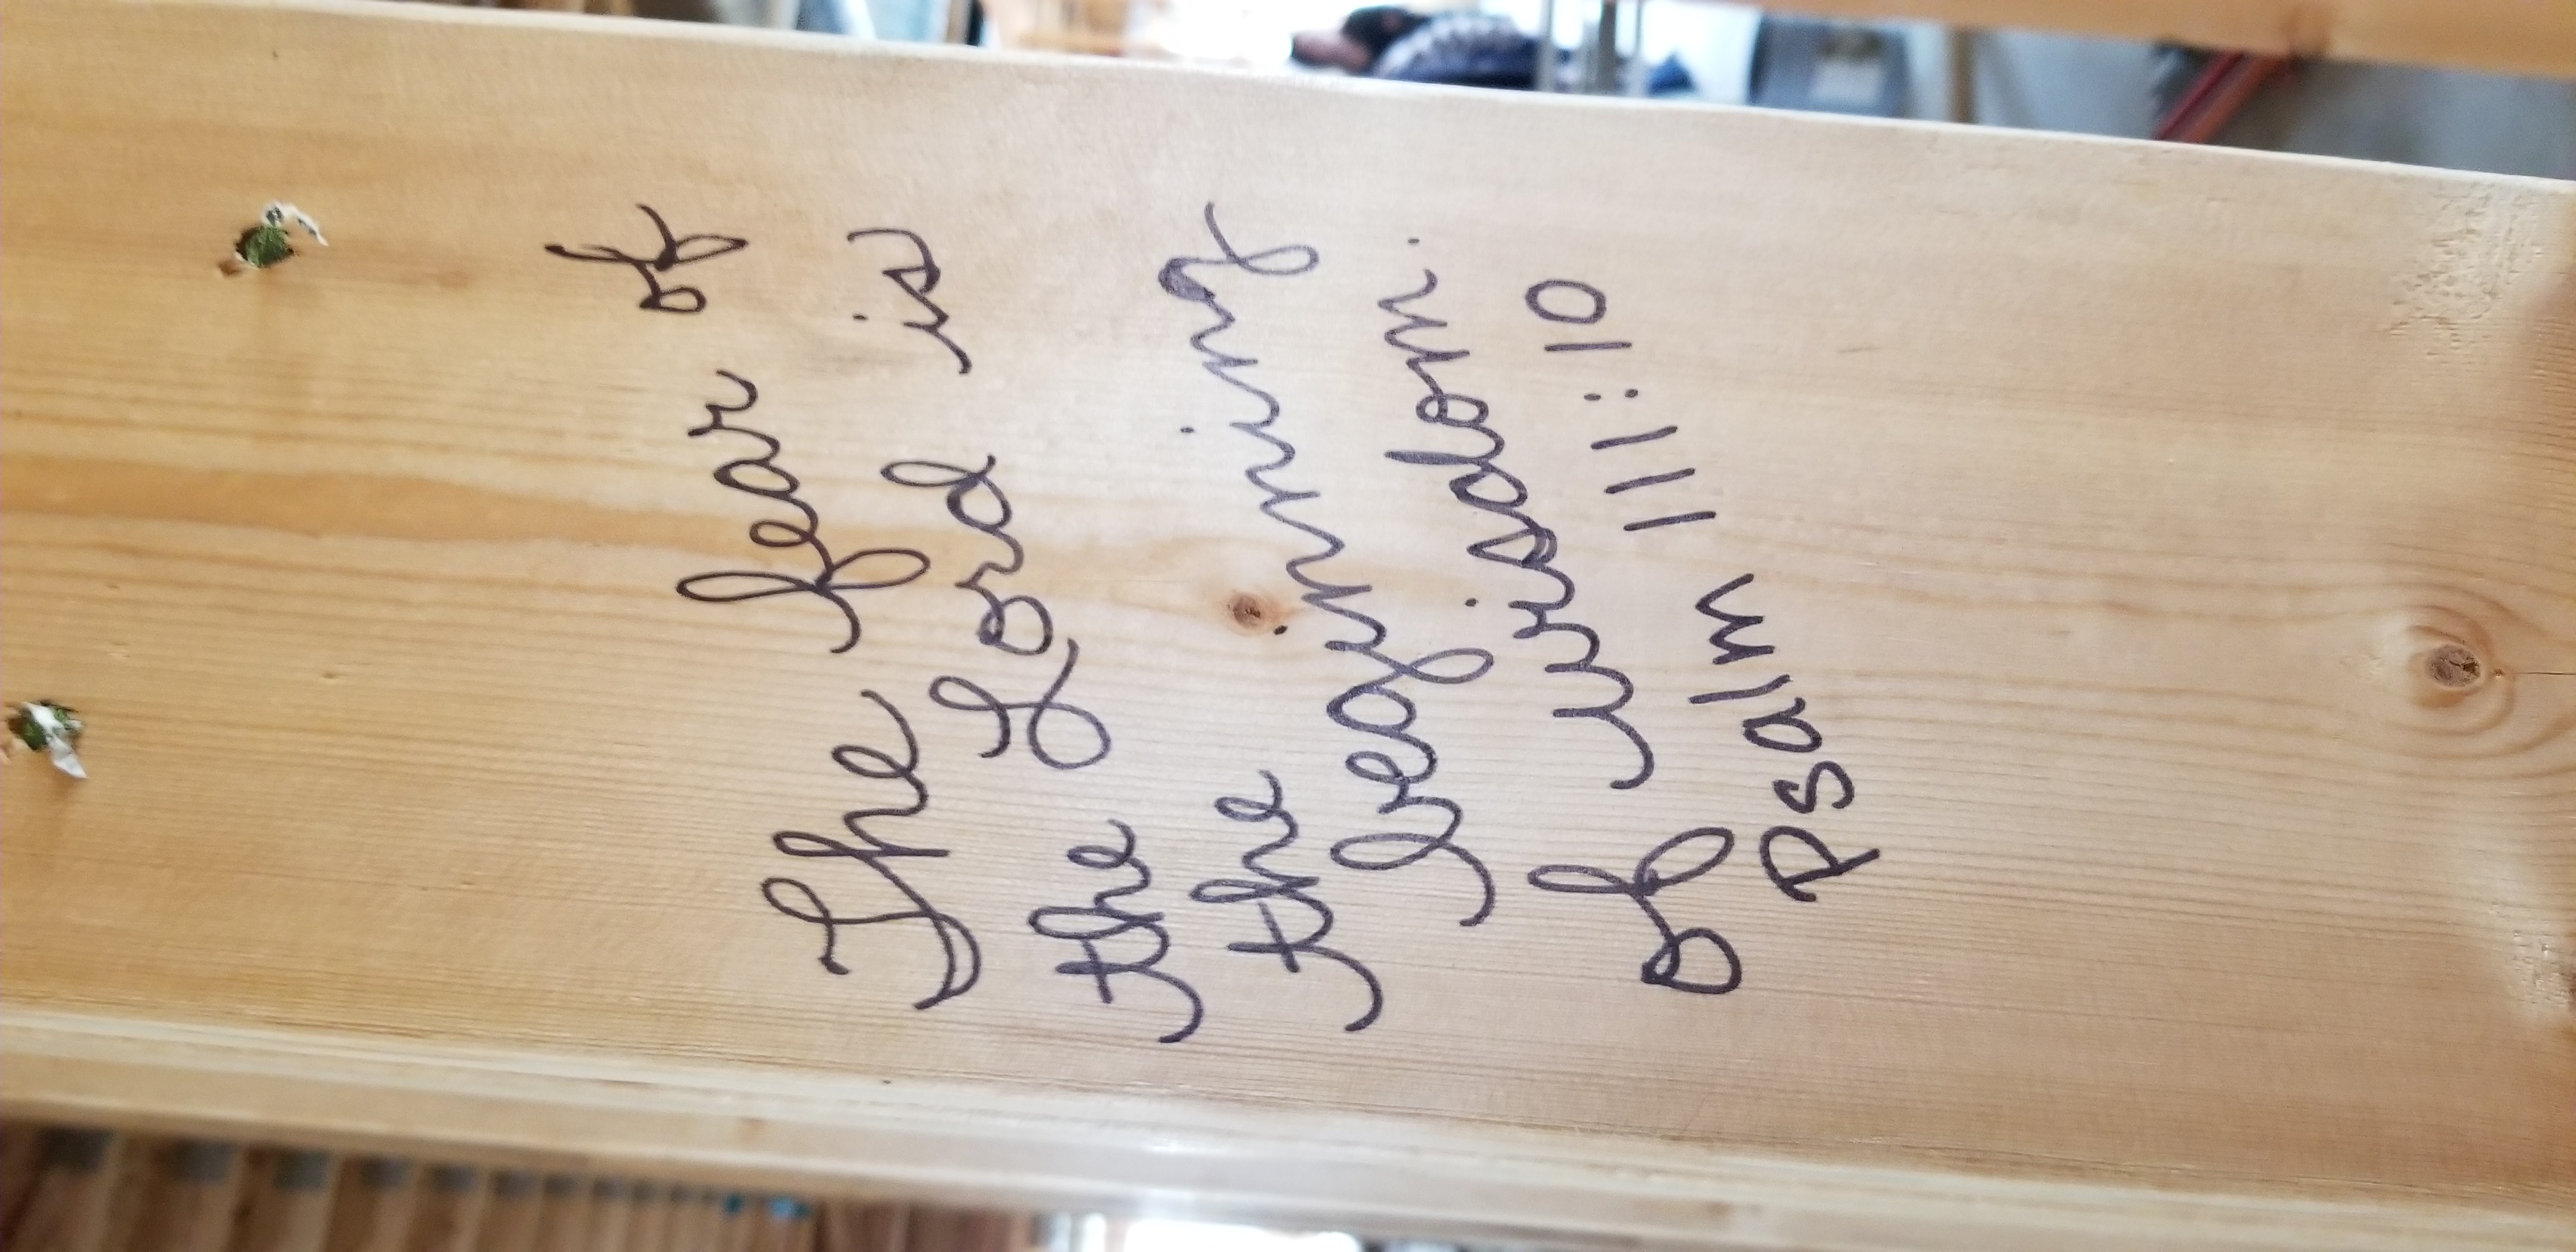 The fear of
the Lord is
the
beginning
of wisdom.
Psalm 111:10